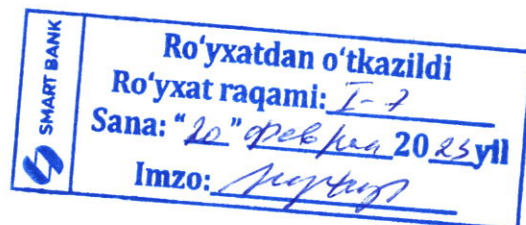 SMART BANK
Ro‘yxatdan o‘tkazildi
Ro‘yxat raqami: I-7
Sana: “20” феврал 2023 yil
Imzo: